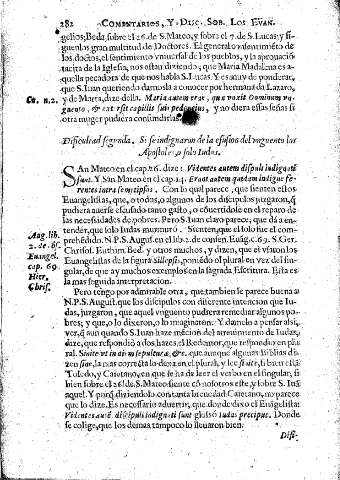 282 COMENTARIOS, Y DISC. SOB. LOS EVAN.
gelios; Beda, sobre el 26. de S. Mateo, y sobre el 7. de S. Lucas; y si-
guenlos gran multitud de Doctores. El general
los doctos, el sentimiento vniuersal de los pueblos, y la aprouació
tacita de la Iglesia, nos està diziendo, que Maria Madalena es a-
quella pecadora de que nos habla S. Lucas. Y es muy de ponderar,
que S. Juan queriendo darnosla a conocer por hermana de Lazaro,
Ca. 11. n. 2. y de Marta, dize della. Maria autem erat, quæ vnxit Dominum vn-
guento, & extersit capillis suis pedes eius, y no diera essas señas si
otra muger pudiera confundirlas.
Dificultad segunda. Si se indignaron de la efusion del vnguento los
Apostoles, o solo Iudas.
SAn Mateo en el cap. 26. dize: Videntes autem discipuli indignati
sunt. Y San Marco en el cap. 14. Erant autem quidam indigne fe-
rentes intra semetipsos. Con lo qual parece, que sienten estos
Euangelistas, que, o todos, o algunos de los dicipulos juzgaron, q
pudiera auerse escusado tanto gasto, o cóuertidole en el reparo de
las necesidades de pobres. Pero S. Iuan claro parece, que dà a en-
tender, que solo Iudas murmurò. Sienten, que el solo fue el com-
Aug. lib. prehédido. N. P. S. Augst. en el lib. 2. de consen. Euāg. c. 69. S. Ger.
2. ce. 65. Crisos. Euthim. Bed. y otros muchos, y dizen, que esvsaron los
Euangel. Euangelistas de la figura Sillepsis, poniédo el plural en vez del sin-
cap. 69 gular, de que ay muchos exemplos en la sagrada Escritura. Esta es
Hier, la mas seguida interpretacion.
Chris. Pero tengo por admirable otra, que tambien se parece buena a
N. P. S. August. que los dicipulos con diferente intencion que Iu-
das, juzgaron, que aquel vnguento pudiera remediar algunos po-
bres; y que, o lo dixeron, o lo imaginaron: Y dame lo a pensar assi,
ver, q aun quando S. Iuan haze mécion del atreuimiento de Iudas,
dize, que respondiò a dos hazes, el Redemtor, que respondio en plu-
ral. Sinite vt in diem sepulturæ, &c. que aunque algunas Biblias di-
zen sine, la mas correcta lo dexa en el plural, y lee sinite, si bien està
Toledo, y Caietano, en que se ha de leer el verbo en el singular, si
bien sobre el 26. de S. Mateo siente có nosotros este, y sobre S. Iuā
aquel. Y porq diziendolo con tanta
que lo dize. Es necessario aduertir, que donde dixo el Euangelista
Videntes autē discipuli indignati sunt glosò Iudas precipue. Donde
se colige, que los demas tampoco lo lleuaron bien.
Dis-